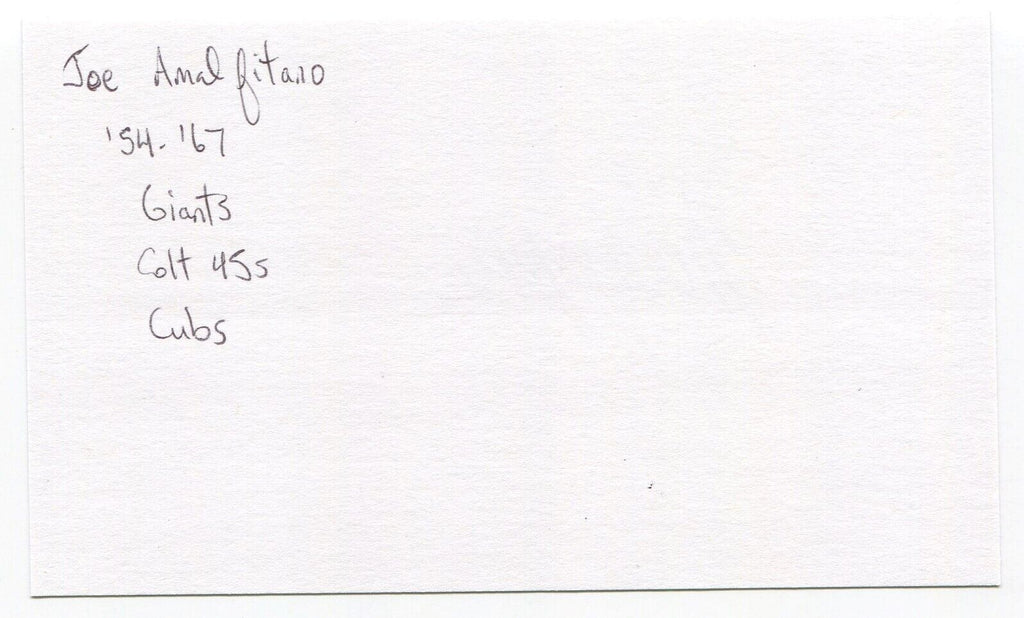 Joe Amalfitano
'54-'67
Giants
Colt 45s
Cubs